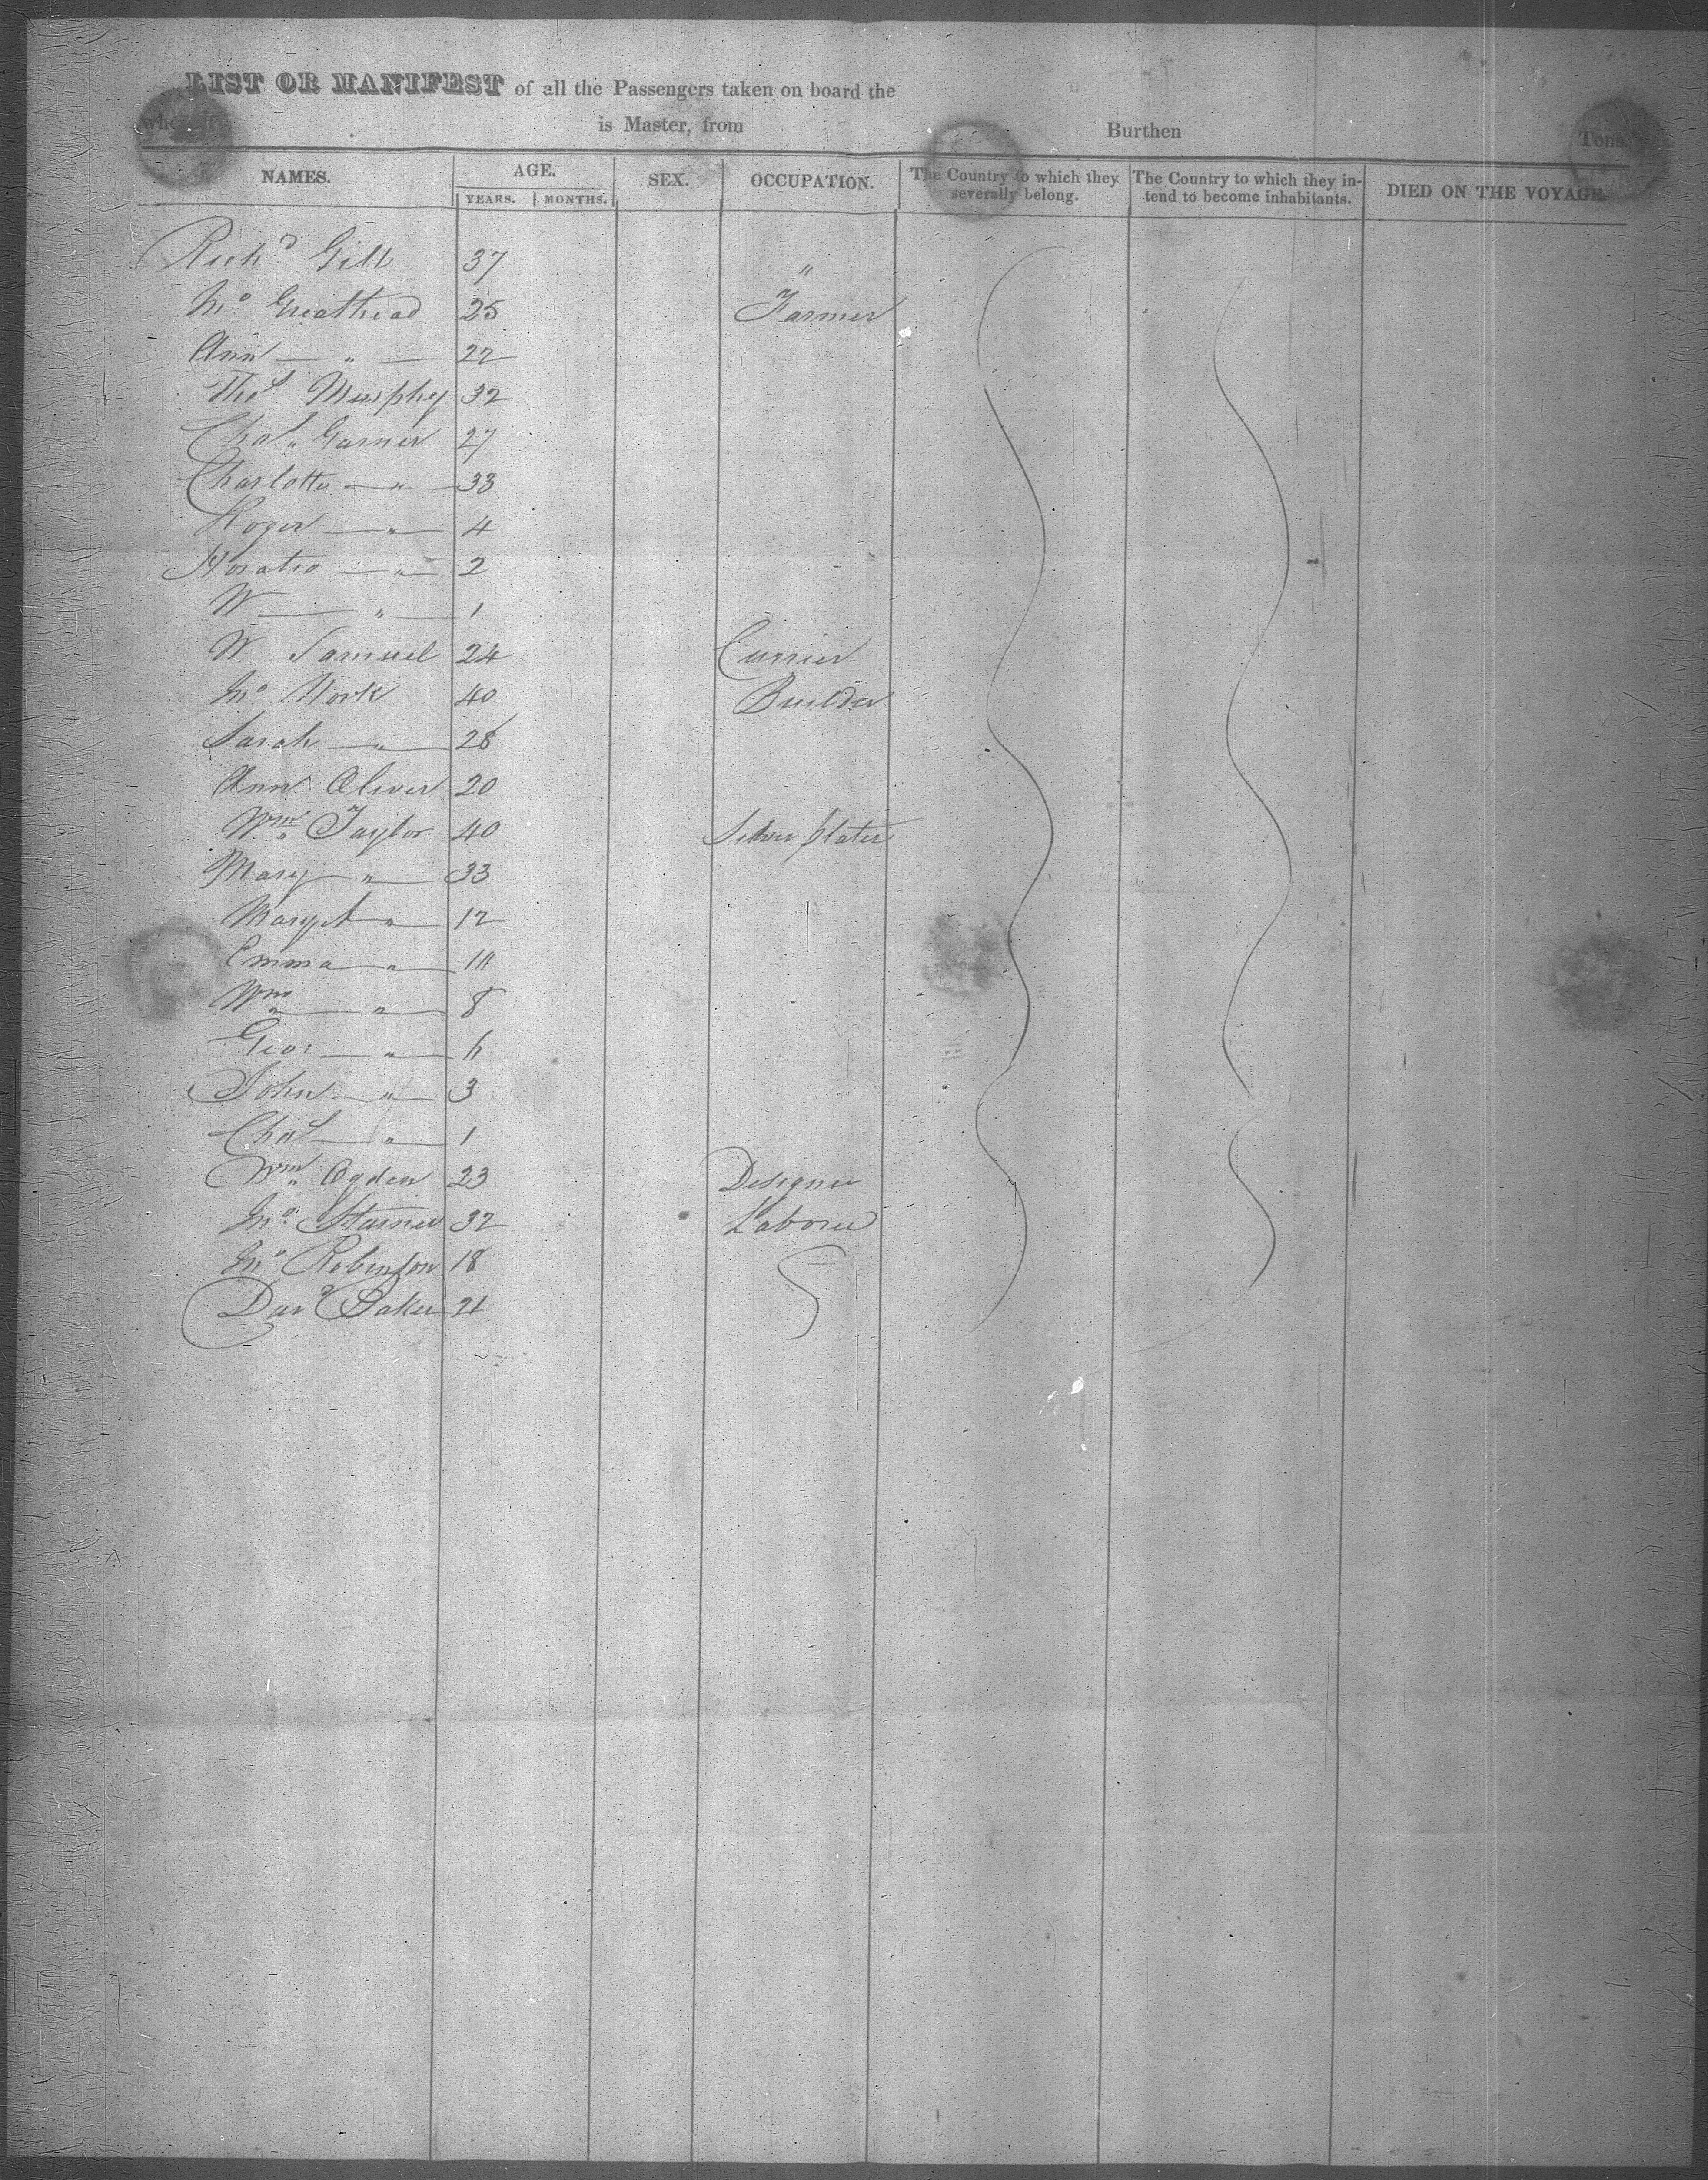 LIST OR MANIFEST of all the Passengers taken on board the
is Master, from Burthen Tons.
NAMES. AGE. SEX. OCCUPATION. The Country to which they severally belong. The Country to which they intend to become inhabitants. DIED ON THE VOYAGE.
YEARS. MONTHS.
Richd Gill 37 "
Jno Greathead 25 Farmer
Ann — " — 22
Thos Murphy 32
Chas Garner 27
Charlotte — " — 33
Roger — " — 4
Horatio — " — 2
W — " — 1
W Samuel 24 Currier
Jno York 40 Builder
Sarah — " — 28
Ann Oliver 20
Wm Taylor 40 Silver plater
Mary " — 33
Margt " — 12
Emma — " — 10
Wm — " — 8
Geo — " — 6
John — " — 3
Chas — " — 1
Wm Ogden 23 Designer
Jno Starner 32 Laborer
Jno Robinson 18
Davd Baker 21